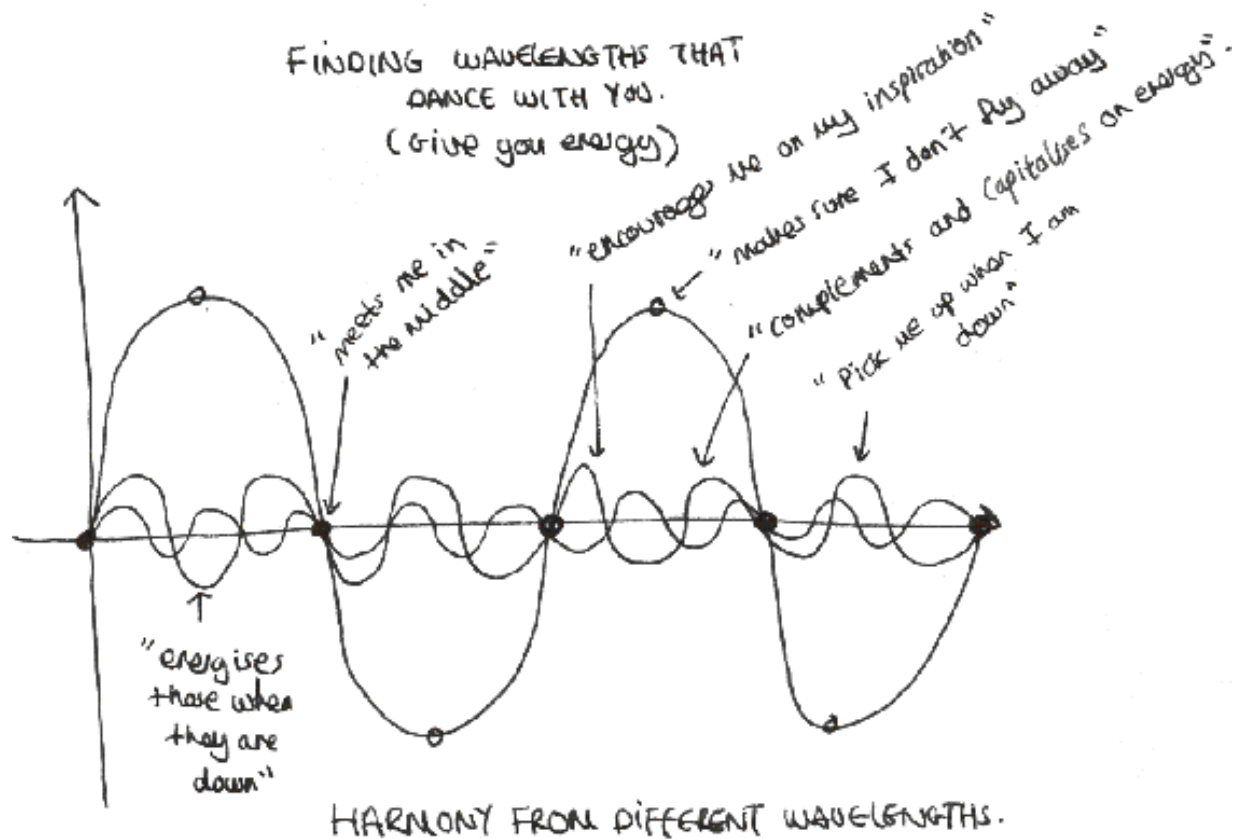 FINDING WAVELENGTHS THAT
DANCE WITH YOU.
(Give you energy)
"meets me in
the middle"
"encourages me on my inspiration"
"makes sure I don't fly away"
"complements and capitalises on energy".
"Pick me up when I am
down"
"energises
those when
they are
down"
HARMONY FROM DIFFERENT WAVELENGTHS.